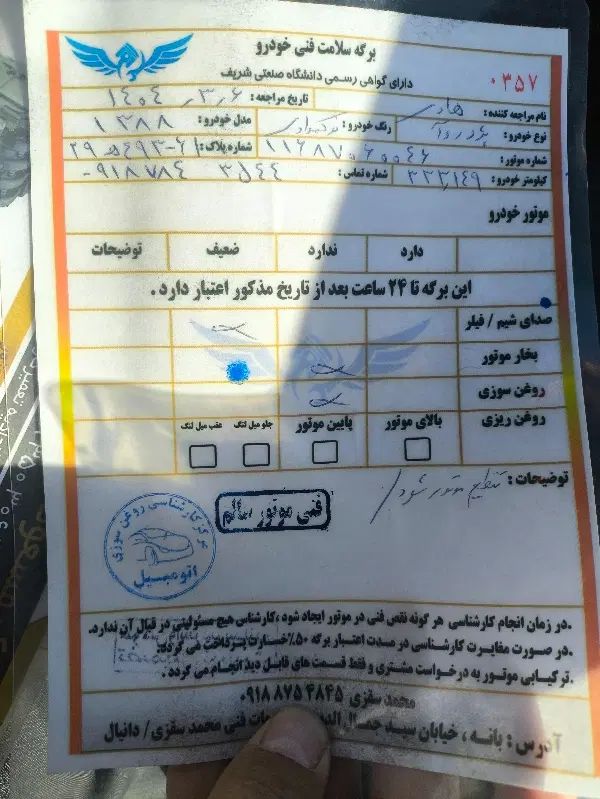 برگه سلامت فنی خودرو
دارای گواهی رسمی دانشگاه صنعتی شریف
۰۳۵۷
نام مراجعه کننده : هادی تاریخ مراجعه : ۱۴۰۴,۳,۶
نوع خودرو : رنگ خودرو : مدل خودرو : ۱۳۸۸
شماره موتور : ۱۱۶۸۷۰۶۰۰۴۶ شماره پلاک :
کیلومتر خودرو : ۳۳۳,۱۴۹ شماره تماس : ۰۹۱۸ ۷۸۴ ۳۵۴۴
موتور خودرو
دارد ندارد ضعیف توضیحات
این برگه تا ۲۴ ساعت بعد از تاریخ مذکور اعتبار دارد .
صدای شیم / فیلر
بخار موتور
روغن سوزی
روغن ریزی بالای موتور پایین موتور جلو میل لنگ عقب میل لنگ
توضیحات : تنظیم موتور شود
فنی موتور سالم
مرکز کارشناسی روغن سوزی
اتومبیل
.در زمان انجام کارشناسی هر گونه نقص فنی در موتور ایجاد شود ،کارشناس هیچ مسئولیتی در قبال آن ندارد.
.در صورت مغایرت کارشناسی در مدت اعتبار برگه ۵۰٪خسارت پرداخت می گردد.
.ترکیابی موتور به درخواست مشتری و فقط قسمت های قابل دید انجام می گردد .
محمد سقزی ۰۹۱۸ ۸۷۵ ۴۸۴۵
آدرس : بانه ، خیابان سید جمال فنی محمد سقزی / دانیال